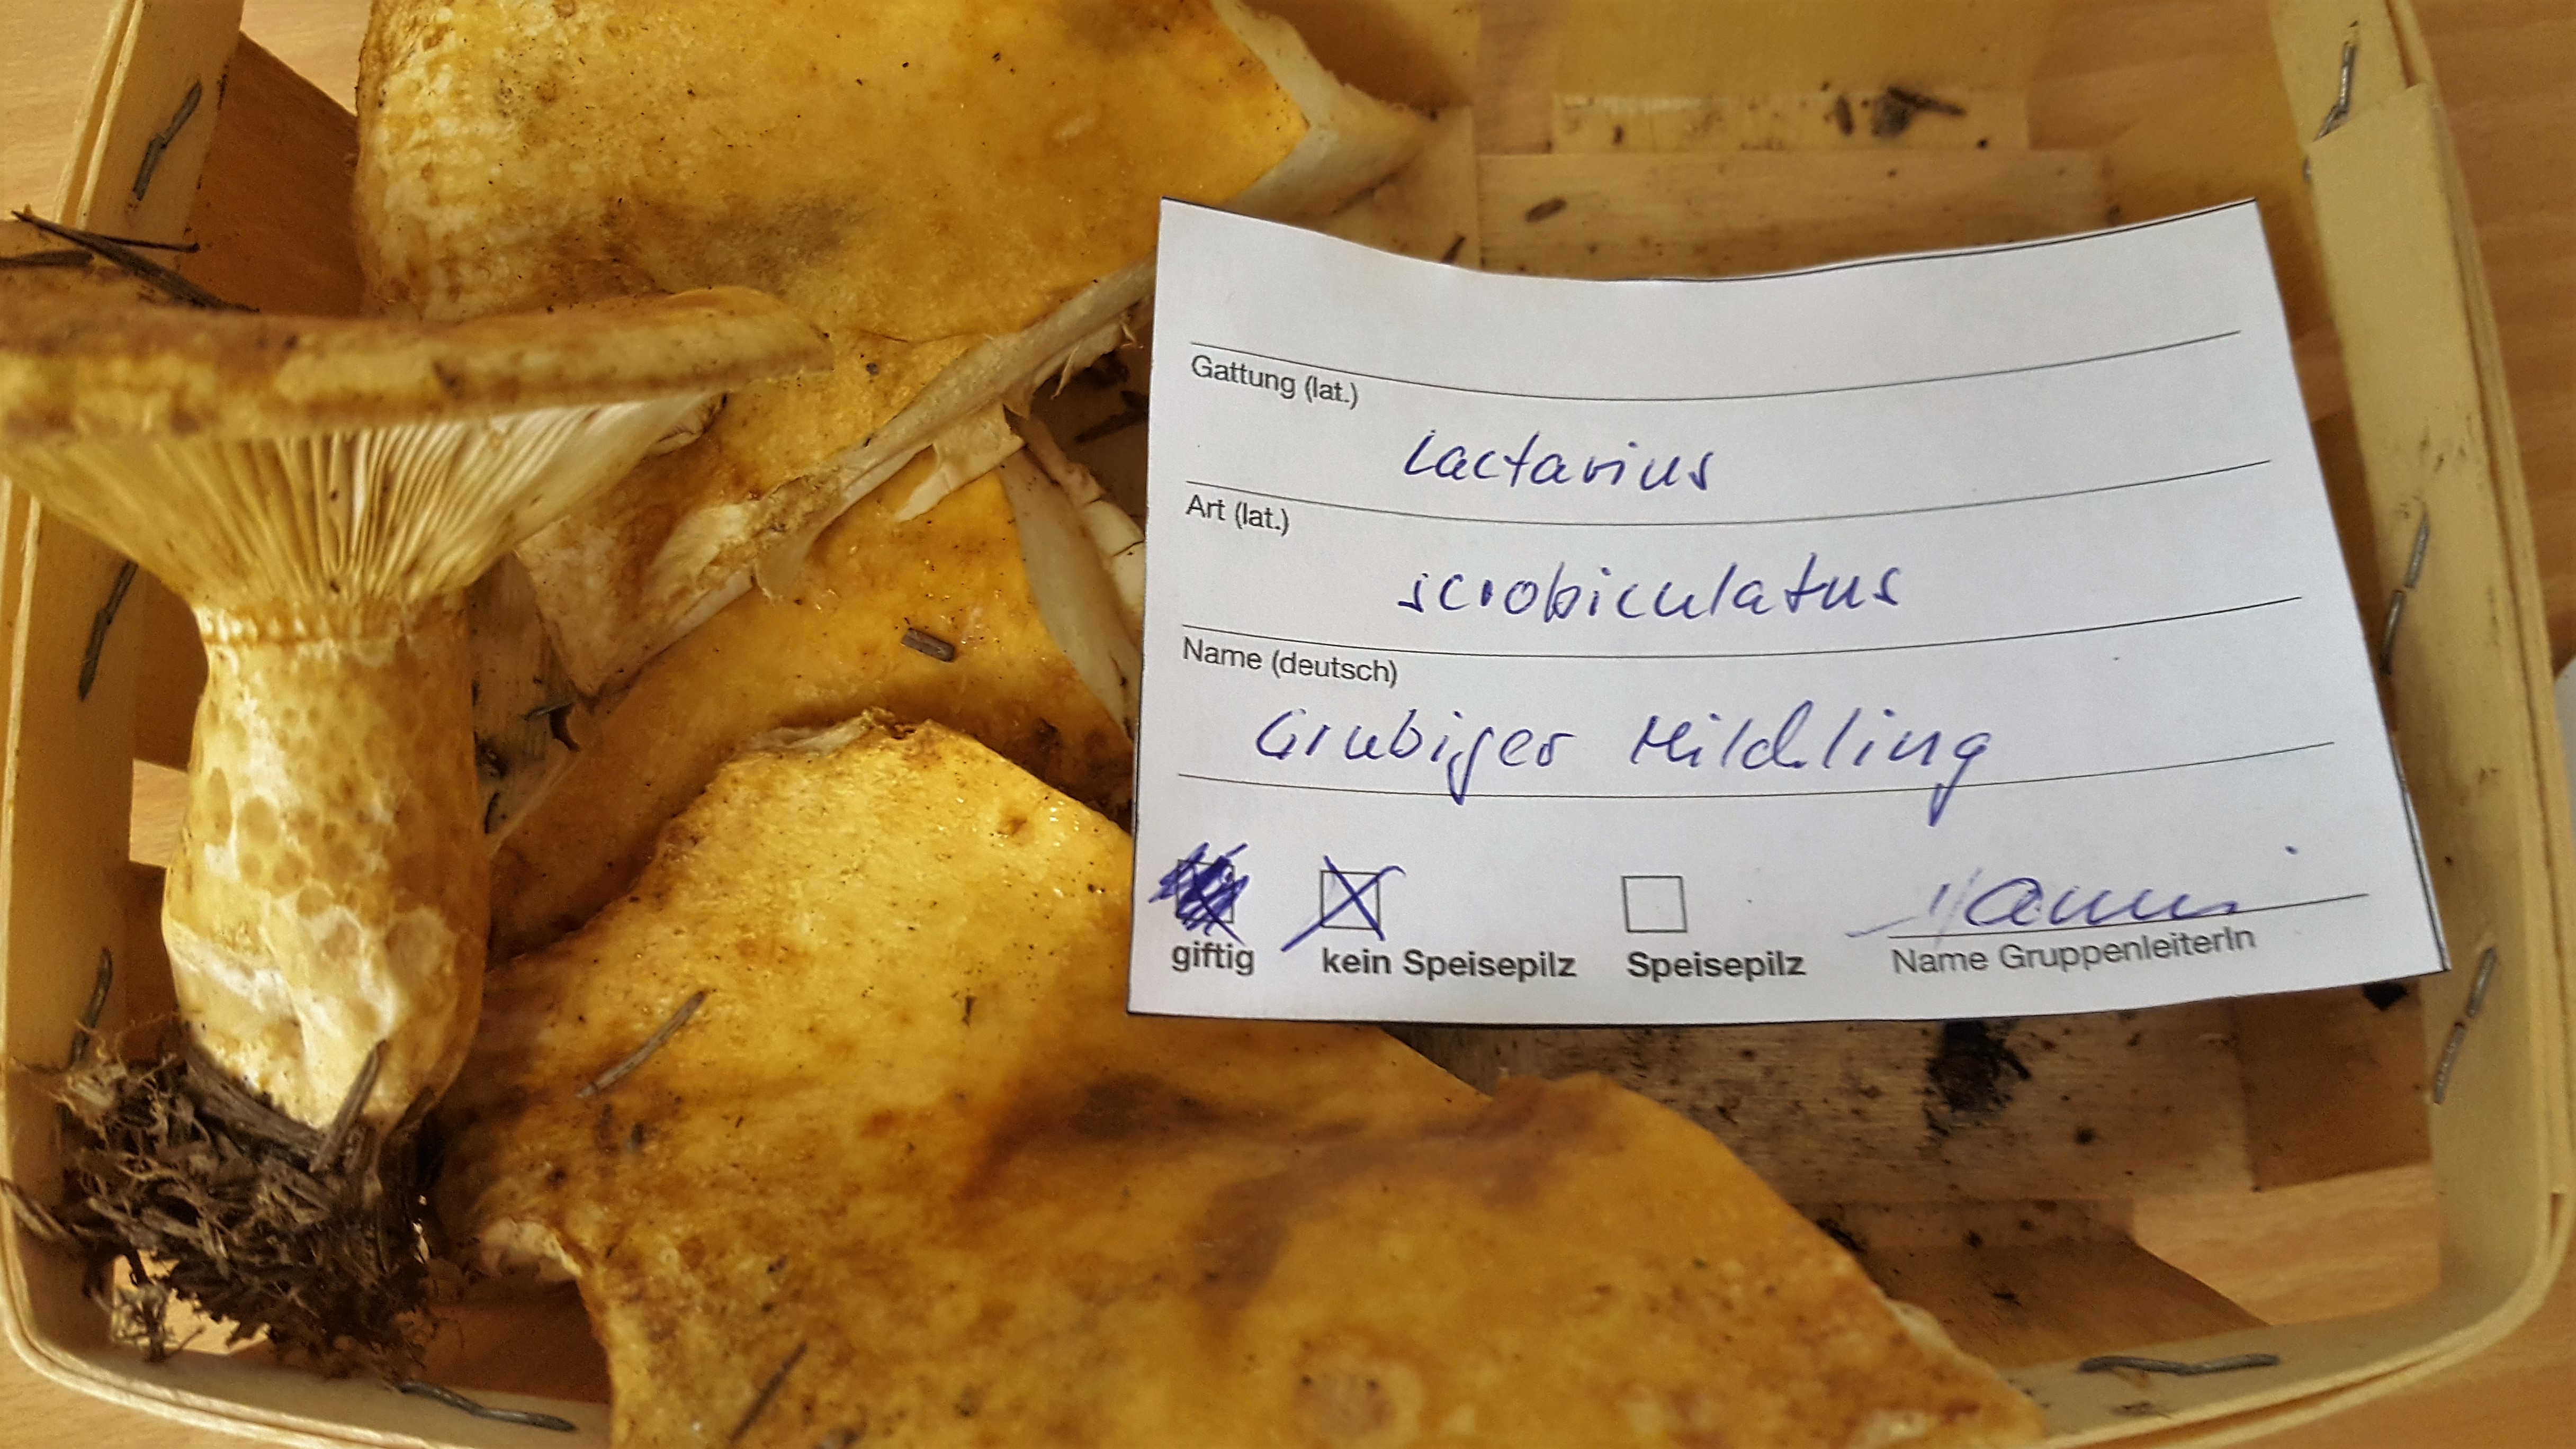 Gattung (lat.)
Lactarius
Art (lat.)
scrobiculatus
Name (deutsch)
Grubiger Milchling
giftig kein Speisepilz Speisepilz Name GruppenleiterIn